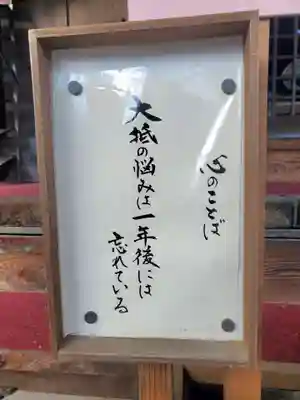 心のことば
大抵の悩みは一年後には
忘れている